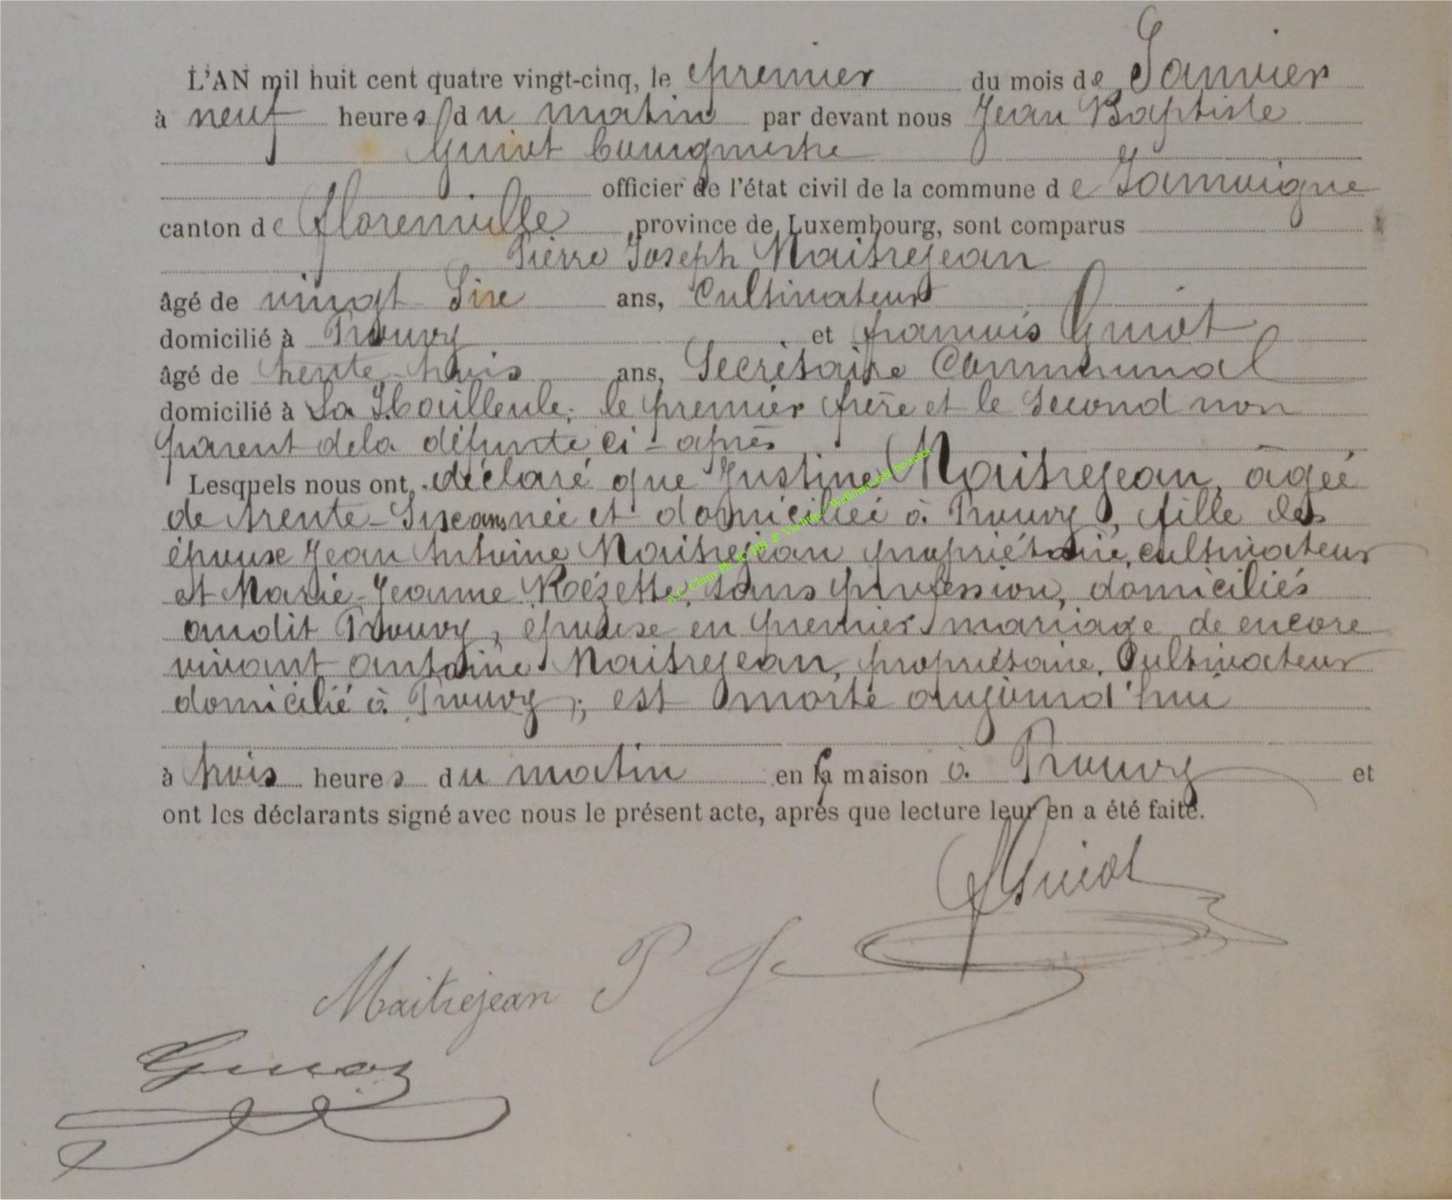 L'AN mil huit cent quatre vingt-cinq, le premier du mois de Janvier
à neuf heures du matin par devant nous Jean Baptiste
Guiot bourgmestre
officier de l'état civil de la commune de Jamoigne
canton de Florenville, province de Luxembourg, sont comparus
Pierre Joseph Maitrejean
âgé de vingt Six ans, Cultivateur
domicilié à Prouvy et francois Guiot
âgé de trente-trois ans, Secrétaire Communal
domicilié à La Houilleule; le premier frère et le Second non
parent dela défunte ci-après
Lesquels nous ont déclaré que Justine Maitrejean, âgée
de trente-Six ans née et domiciliée à Prouvy, fille des
épouse Jean Antoine Maitrejean propriétaire, cultivateur
et Marie-Jeanne Rézette, sans profession, domiciliés
audit Prouvy, épouse en premier mariage de encore
vivant antoine Maitrejean, propriétaire, Cultivateur
domicilié à Prouvy; est morte aujourd'hui
à trois heures du matin en sa maison à Prouvy et
ont les déclarants signé avec nous le présent acte, après que lecture leur en a été faite.
Guiot
Maitrejean P J
Guiot